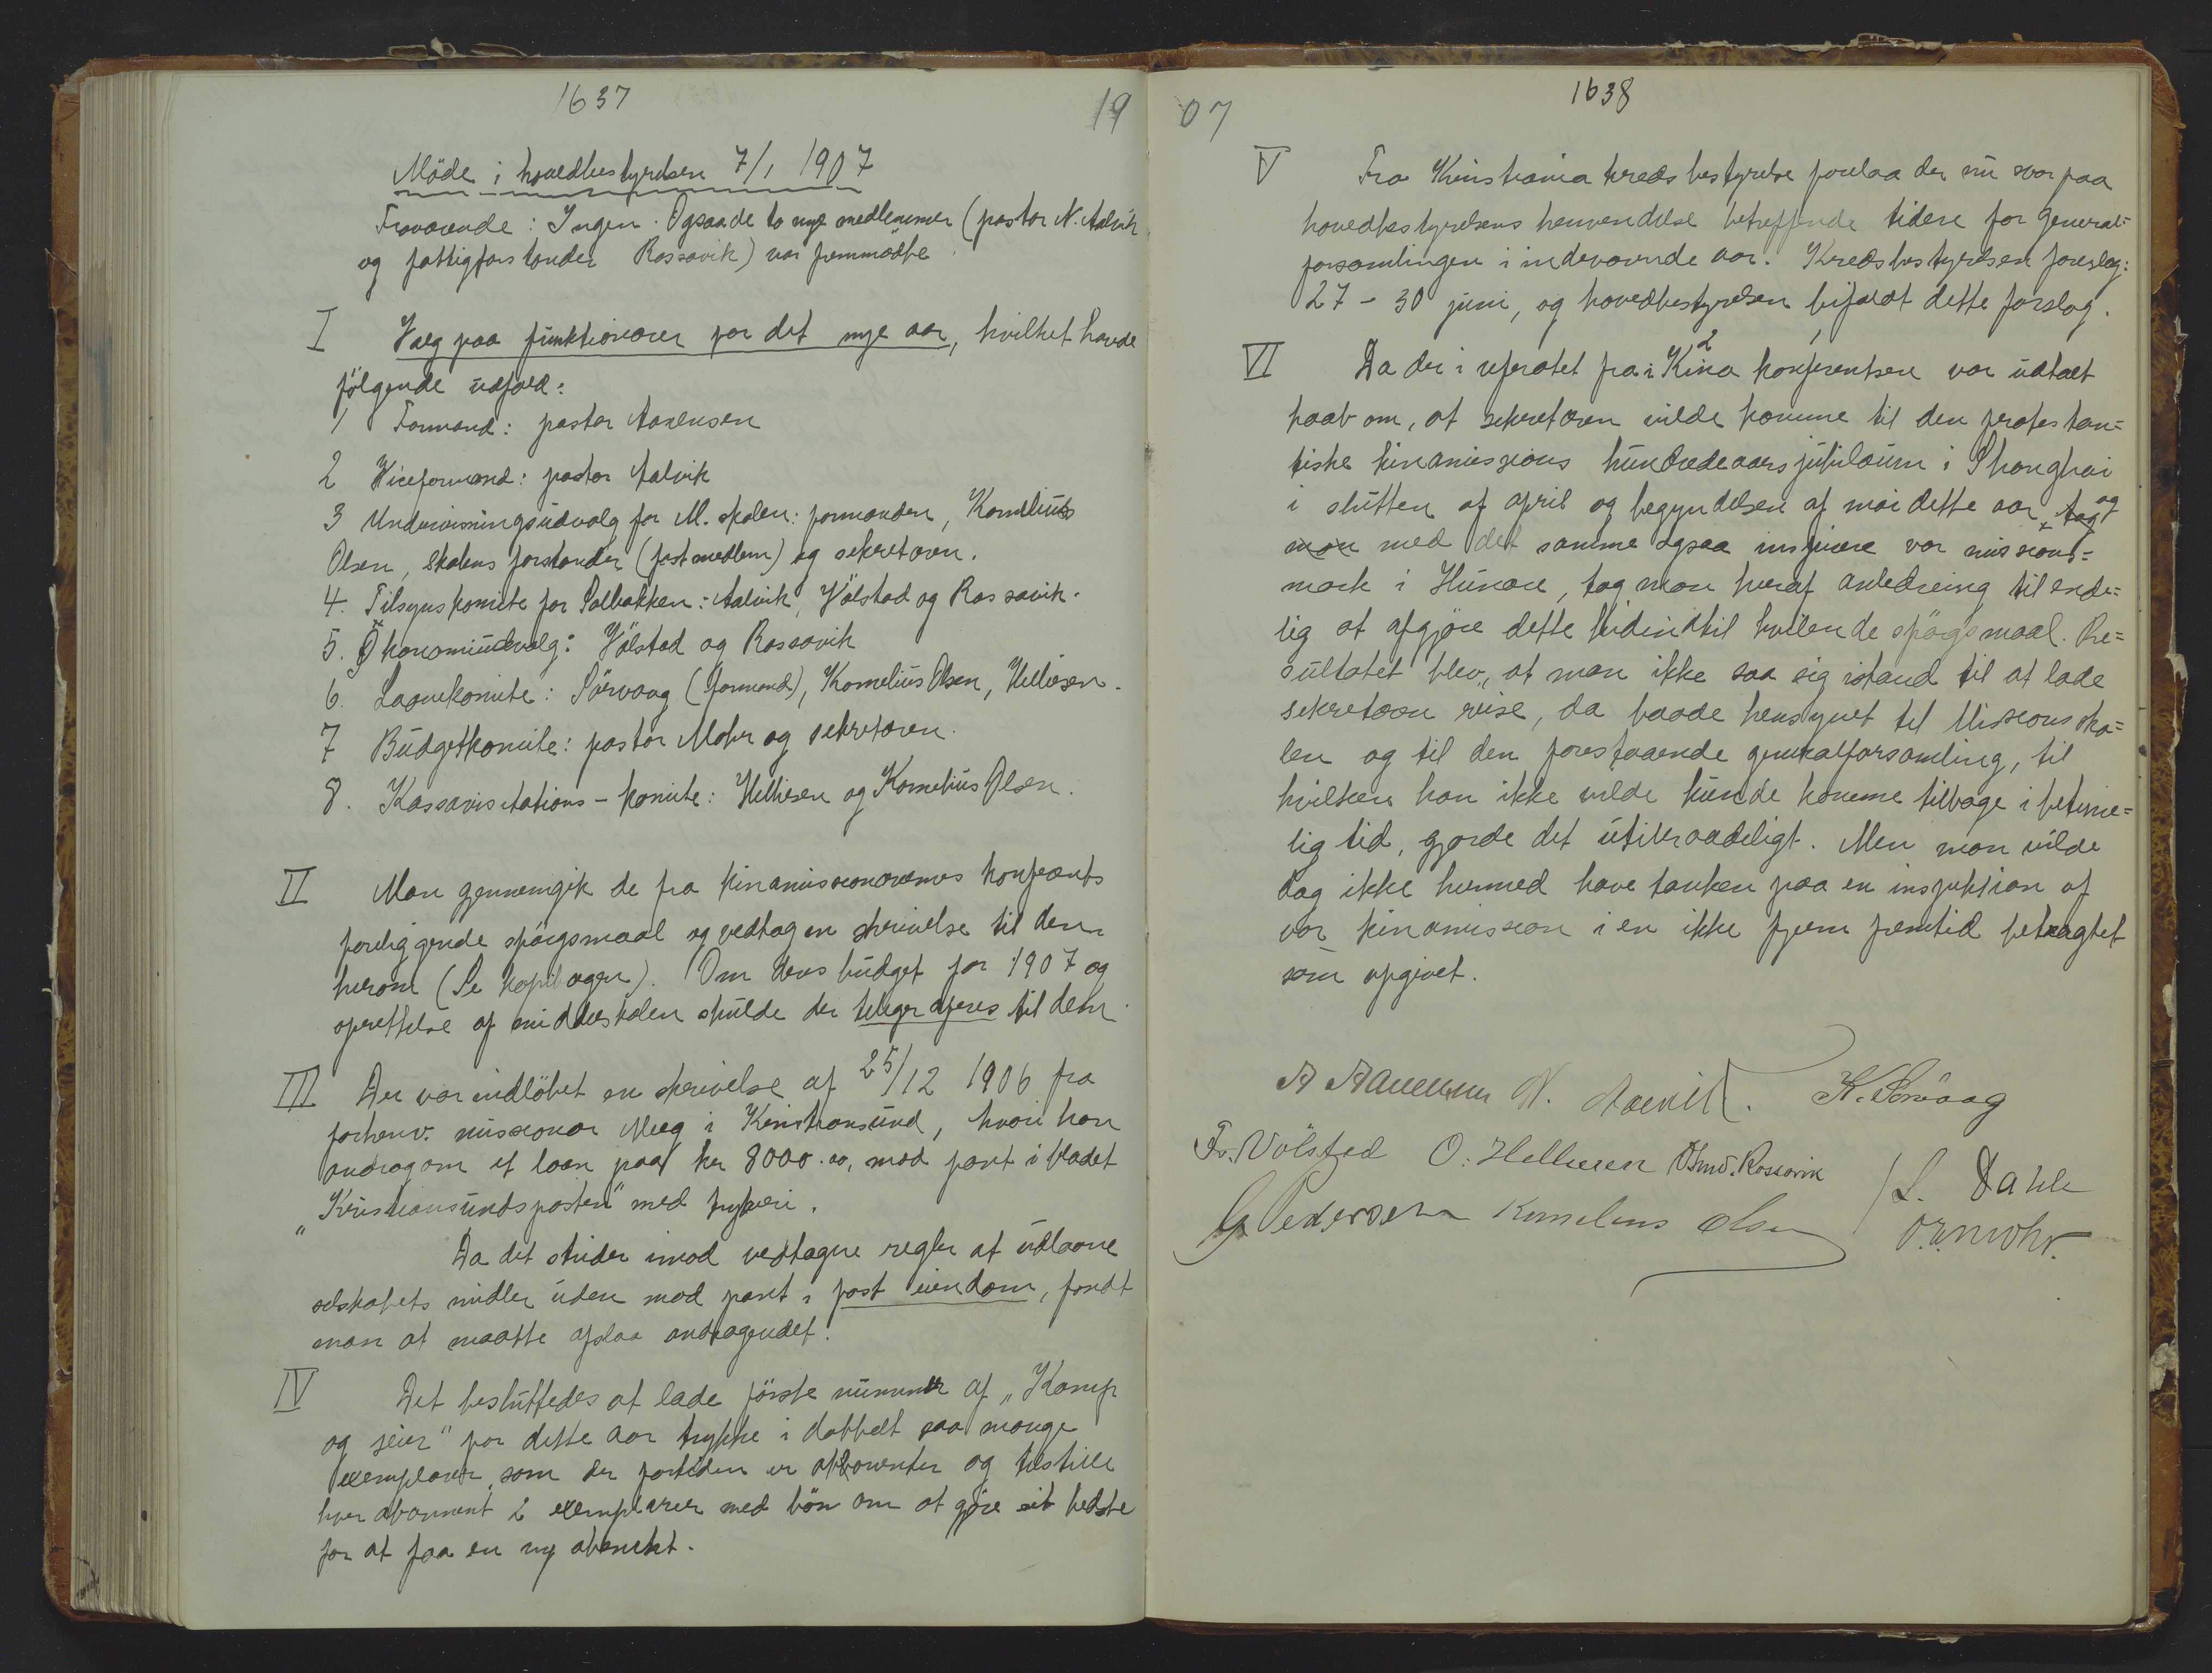 1637
19
Möde i hovedbestyrelsen 7/1 1907
Fraværende: Ingen. Ogsaa de to nye medlemmer (pastor N. Aalvik
og fattigforstander Rossavik) var fremmödte.
I Valg paa funktionærer for det nye aar, hvilket havde
fölgende udfald:
1 Formand: pastor Aanensen
2 Viceformand: pastor Aalvik
3 Undervisningsudvalg for M. skolen: formanden, Kornelius
Olsen, Skolens forstander (fast medlem) og sekretæren.
4. Tilsynskomite for Solbakken: Aalvik, Völstad og Rossavik.
5. Ökonomiudvalg: Völstad og Rossavik
6. Laanekomite: Sörvaag (formand), Kornelius Olsen, Helliesen.
7 Budgetkomite: pastor Mohr og sekretæren.
8. Kassavisitations-komite: Helliesen og Kornelius Olsen.
II Man gjennemgik de fra kinamissionærernes konferents
foreliggende spörgsmaal og vedtog en skrivelse til dem
herom (Se kopibogen). Om deres budget for 1907 og
oprettelse af middelskolen skulde der telegraferes til dem.
III Der var indlöbet en skrivelse af 25/12 1906 fra
forhenv. missionær Meeg i Kristiansund, hvori han
androg om et laan paa kr 8000.00, mod pant i bladet
„Kristiansundsposten" med trykkeri.
Da det strider imod vedtagne regler at udlaane
selskabets midler uden mod pant i fast eiendom, fandt
man at maatte afslaa andragendet.
IV Det besluttedes at lade förste nummer af „Kamp
og seier" for dette aar trykke i dobbelt saa mange
exemplarer, som der fortiden er abonenter og tilstille
hver abonnent 2 exemplarer med bön om at gjöre sit bedste
for at faa en ny abonent.
07
1638
V Fra Kristiania kredsbestyrelse forelaa der nu svar paa
hovedbestyrelsens henvendelse betreffende tiden for general=
forsamlingen i indeværende aar. Kredsbestyrelsen foreslog:
27 - 30 juni, og hovedbestyrelsen bifaldt dette forslag.
VI Da der i referatet fra i Kina konferentsen var udtalt
haab om, at sekretæren vilde komme til den protestan=
tiske kinamissions hundredeaarsjubilæum i Shanghai
i slutten af april og begyndelsen af mai dette aar, tog og
man med det samme ogsaa inspicere vor missions=
mark i Hunan, tog man heraf anledning til ende=
lig at afgjöre dette hidindtil hvilende spörgsmaal. Re=
sultatet blev, at man ikke saa sig istand til at lade
sekretæren reise, da baade hensynet til Missionssko=
len og til den forestaaende generalforsamling, til
hvilken han ikke vilde kunde komme tilbage i betime=
lig tid, gjorde det utilraadeligt. Men man vilde
dog ikke hermed have tanken paa en inspektion af
vor kinamission i en ikke fjern fremtid betragtet
som opgivet.
A Aanensen N. Aalvik. K. Sörvaag
Fr. Völsted O. Helliesen Osmd. Rossavik L. Dahle
G Pedersen Kornelius Olsen O. E. Mohr.